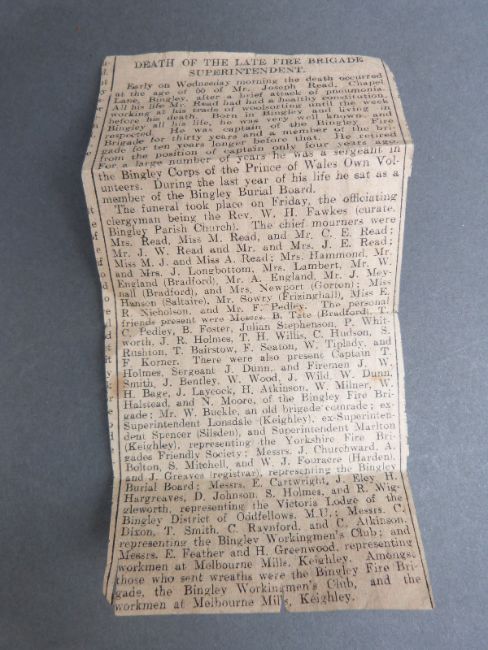 DEATH OF THE LATE FIRE BRIGADE
SUPERINTENDENT.
Early on Wednesday morning the death occurred
at the age of 66 of Mr. Joseph Read, Chapel
Lane, Bingley, after a brief attack of pneumonia.
All his life Mr. Read had had a healthy constitution,
working at his trade of woolsorting until the week
before his death. Born in Bingley and living in
Bingley all his life, he was very well known, and
respected. He was captain of the Bingley Fire
Brigade for thirty years and a member of the bri-
gade for ten years longer before that. He retired
from the position of captain only four years ago.
For a large number of years he was a sergeant in
the Bingley Corps of the Prince of Wales Own Vol-
unteers. During the last year of his life he sat as a
member of the Bingley Burial Board.
The funeral took place on Friday, the officiating
clergyman being the Rev. W. H. Fawkes (curate,
Bingley Parish Church). The chief mourners were
Mrs. Read, Miss M. Read, and Mr. C. E. Read;
Mr. J. W. Read and Mr. and Mrs. J. E. Read;
Miss M. J. and Miss A. Read; Mrs. Hammond, Mr.
and Mrs. J. Longbottom, Mrs. Lambert, Mr. W.
England (Bradford), Mr. A. England, Mr. J. Mey-
nall (Bradford), and Mrs. Newport (Gorton); Miss
Hanson (Saltaire), Mr. Sowry (Frizinghall), Miss E.
R. Nicholson, and Mr. F. Pedley. The personal
friends present were Messrs. B. Tate (Bradford), T.
C. Pedley, B. Foster, Julian Stephenson, P. Whit-
worth, J. R. Holmes, T. H. Willis, C. Hudson, S.
Rushton, T. Bairstow, F. Seaton, W. Tiplady, and
F. Korner. There were also present Captain T.
Holmes, Sergeant J. Dunn, and Firemen J. W.
Smith, J. Bentley, W. Wood, J. Wild, W. Dunn,
H. Bage, J. Laycock, H. Atkinson, W. Milner, W.
Halstead, and N. Moore, of the Bingley Fire Bri-
gade; Mr. W. Buckle, an old brigade comrade; ex-
Superintendent Lonsdale (Keighley), ex-Superinten-
dent Spencer (Silsden), and Superintendent Marlton
(Keighley), representing the Yorkshire Fire Bri-
gades Friendly Society; Messrs. J. Churchward, A.
Bolton, S. Mitchell, and W. J. Fouracre (Harden),
and J. Greaves (registrar), representing the Bingley
Burial Board; Messrs. E. Cartwright, J. Eley, H.
Hargreaves, D. Johnson, S. Holmes, and R. Wig-
glesworth, representing the Victoria Lodge of the
Bingley District of Oddfellows, M.U.; Messrs. C.
Dixon, T. Smith, C. Raynford, and C. Atkinson,
representing the Bingley Workingmen's Club; and
Messrs. E. Feather and H. Greenwood, representing
workmen at Melbourne Mills, Keighley. Amongst
those who sent wreaths were the Bingley Fire Bri-
gade, the Bingley Workingmen's Club, and the
workmen at Melbourne Mills, Keighley.